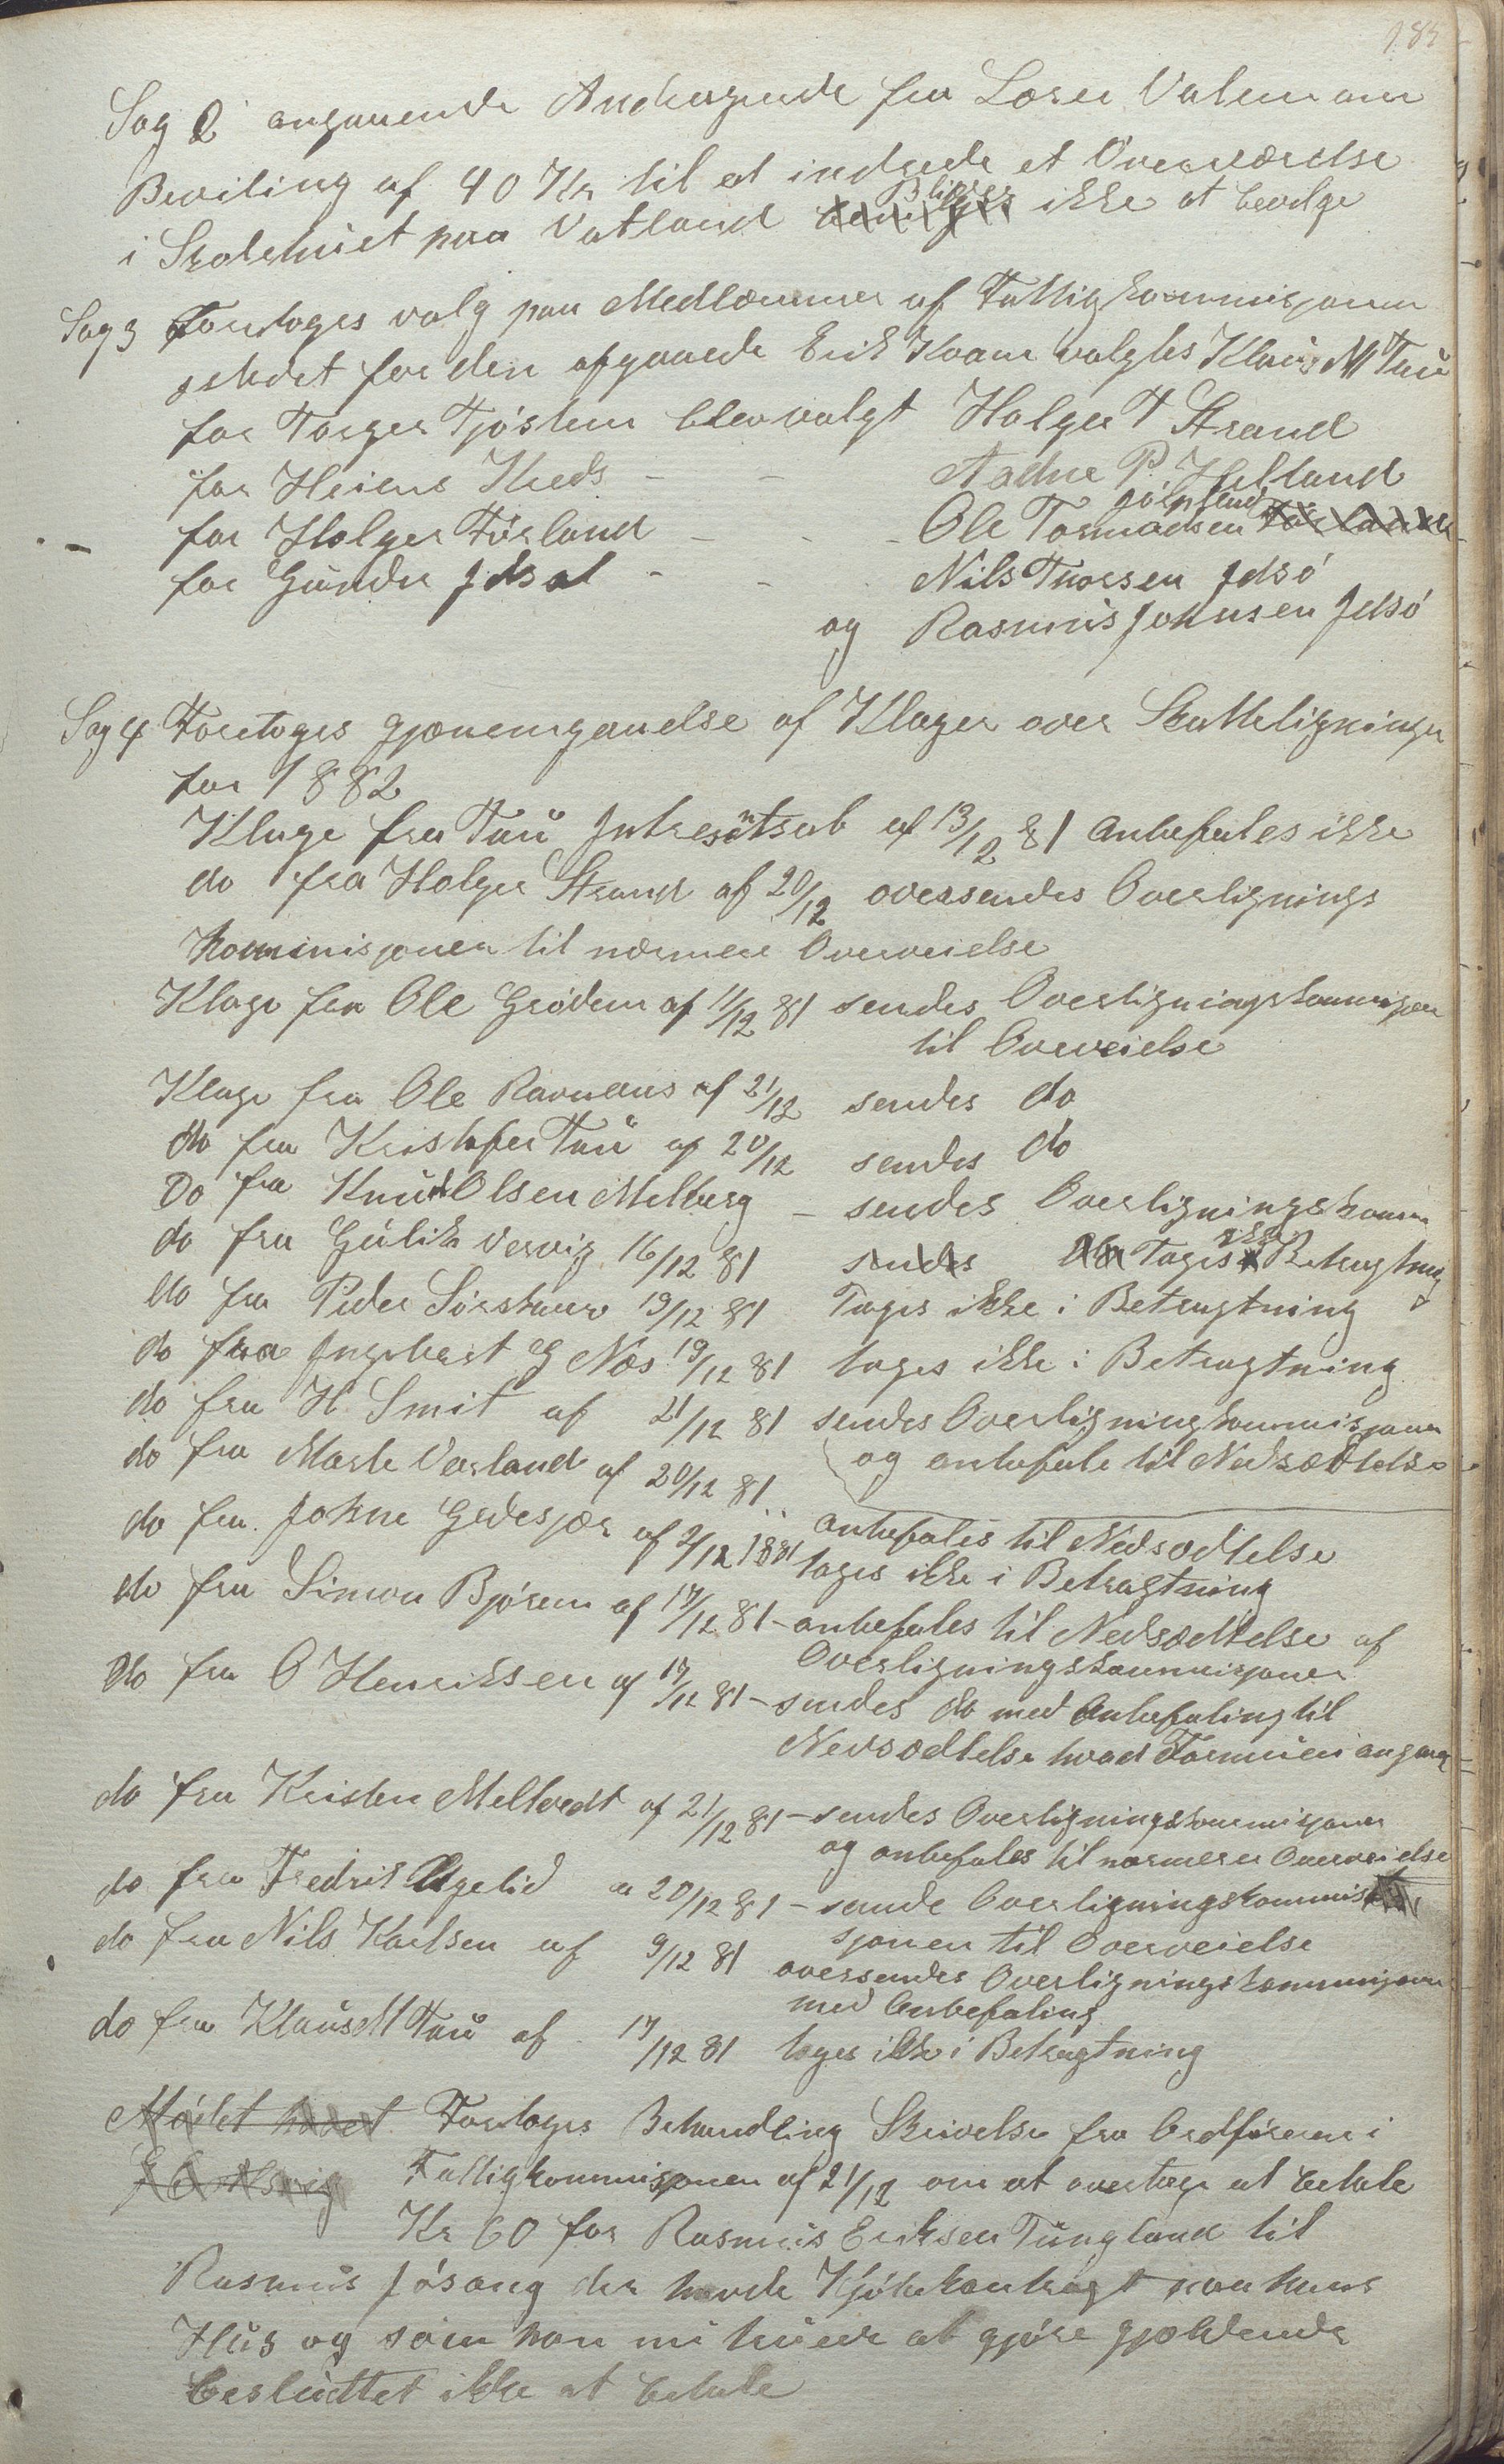 185
Sag 2 angaaende Andragende fra Lærer Valem om
Beviling af 40 Kr til at indrede et Overværelse
i Skolehuset paa Vatland Bliver ikke at bevilge
Sag 3 Foretoges valg paa Medlemmer af Fattigkommisjonen
istedet for den afgaaede Erik Kvam valgtes Klaus M Tau
for Torger Tjøstem blev valgt Holger T Strand
for Heiens Kreds - - Aadne P. Helland
for Holger Førland - - - Ole Tormodsen
for Gunder Idsal - - Nils Thorsen Idsø
og Rasmus Johnsen Idsø
Sag 4 Foretoges gjænemgaaelse af Klager over Skatteligningen
for 1882
Klage fra Tau Intresentsab af 13/12 81 anbefales ikke
do fra Holger Strand af 20/12 oversendes Overlignings
kommisjonen til nærmere Overveielse
Klage fra Ole Grødem af 11/12 81 sendes Overligningskommisjonen
til Overveielse
Klage fra Ole Ravnaas af 21/12 sendes do
do fra Kristofer Tau af 20/12 sendes do
Do fra Knud Olsen Melberg - sendes Overligningskomm
do fra Gulik Versvig 16/12 81 sendes do Tages ikke i Betragtning
do fra Peder Sørskaar 19/12 81 Tages ikke i Betragtning
do fra Ingebret G Næs 19/12 81 tages ikke i Betragtning
do fra H. Smit af 21/12 81 sendes Overligningkommisjonen
og anbefale til Nedsædtelse
do fra Marte Versland af 20/12 81
anbefales til Nedsædtelse
do fra Johne Gedesjær af 2/12 1881 tages ikke i Betragtning
do fra Simon Bjøren af 17/12 81 - anbefales til Nedsædtelse af
Overligningskommisjonen
do fra O Henriksen af 17/12 81 - sendes do med Anbefaling til
Nedsædtelse hvad Formuen angaar
do fra Kristen Meltvedt af 21/12 81 - sendes Overligningskommisjonen
og anbefales til nærmere Overveielse
do fra Fredrik Agelid a 20/12 81 - sende Overligningskommis
sjonen til Overveielse
do fra Nils Karlsen af 9/12 81 oversendes Overligningskommisjonen
med Anbefaling
do fra Klaus M Tau af 17/12 81 tages ikke i Betragtning
Mødet hævet Foretoges Behandling Skrivelse fra Ordføreren i
Fattigkommisjonen af 21/12 om at overtage at betale
Kr 60 for Rasmus Eriksen Tungland til
Rasmus Jøsang der havde Kjøbekontragt paa hans
Hus og som han nu truer at gjøre gjældende
besluttet ikke at betale